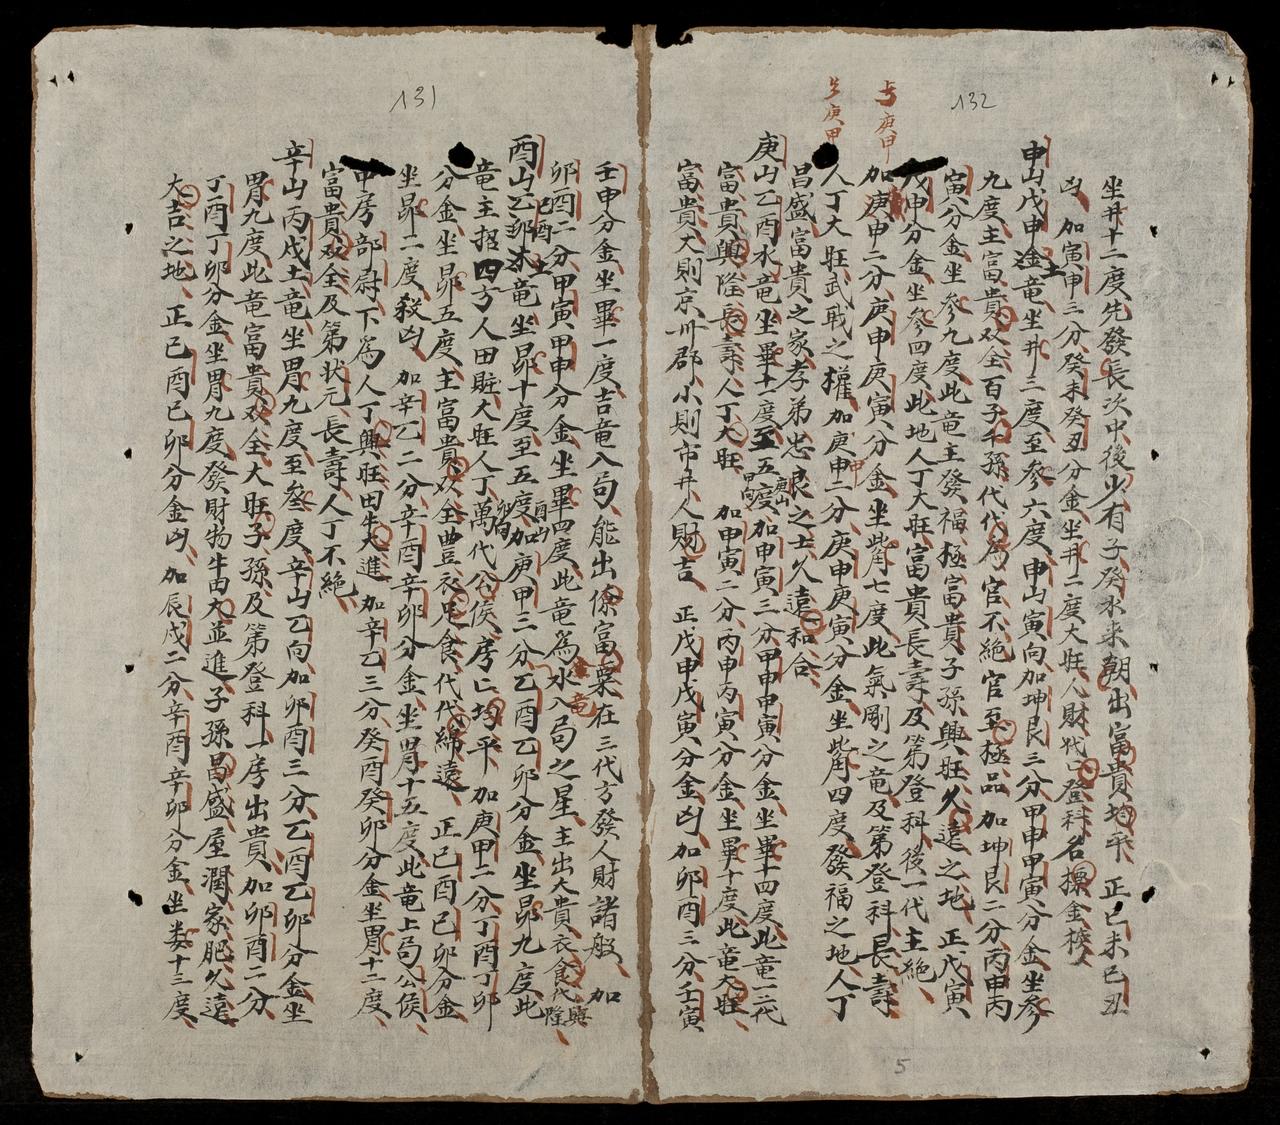 132
坐井十二度先發長次中後山有子癸水来朝出富貴均平 正己未己丑
凶 加寅申三分癸未癸丑分金坐井二度大旺人財代代登科名標金榜
申山戊申土竜坐井三度至參六度申山寅向加坤艮三分甲申甲寅分金坐参
九度主富貴双全百子千孫代代為官不絶官至極品 加坤艮二分丙申丙
寅分金坐参九度此竜主發福極富貴子孫興旺久遠之地 正戊寅
戊申分金坐參四度此地人丁大旺富貴長壽及第登科後一代主絶
加庚申二分庚申庚寅分金坐觜七度此氣剛之竜及第登科長壽
人丁大旺武職之權加庚申二分庚申庚寅分金坐觜四度發福之地人丁
昌盛富貴之家孝弟忠良之士久遠和合
庚山乙酉水竜坐畢十一度至五度庚山甲向加申寅三分甲申甲寅分金坐畢十四度此竜一二代
富貴興隆長壽人丁大旺 加申寅二分丙申丙寅分金坐畢十度此竜大旺
富貴大則京州郡小則市井人財吉 正戊申戊寅分金凶加卯酉三分壬寅
5
131
壬申分金坐畢一度吉竜入局能出條富粟在三代方發人財諸般 加
卯酉二分甲寅甲申分金坐畢四度此竜為水入局之星主出大貴衣食代興隆
酉山己酉土竜坐昴十度至五度酉山卯向加庚甲三分乙酉乙卯分金坐昴九度此
竜主招四方人田賍大旺人丁萬代公侯房亡均平 加庚甲二分丁酉丁卯
分金坐昴五度主富貴双全豊衣足食代代綿遠 正己酉己卯分金
坐昴二度殺凶 加辛乙二分辛酉辛卯分金坐胃十五度此竜上局公侯
中房部尉下為人丁興旺田牛大進 加辛乙三分癸酉癸卯分金坐胃十二度
富貴双全及第状元長壽人丁不絶
辛山丙戊土竜坐胃九度至婁度辛山乙向加卯酉三分乙酉乙卯分金坐
胃九度此竜富貴双全大旺子孫及第登科一房出貴加卯酉二分
丁酉丁卯分金坐胃九度發財物牛田大並進子孫昌盛屋潤家肥久遠
大吉之地 正己酉己卯分金凶 加辰戌二分辛酉辛卯分金坐婁十三度